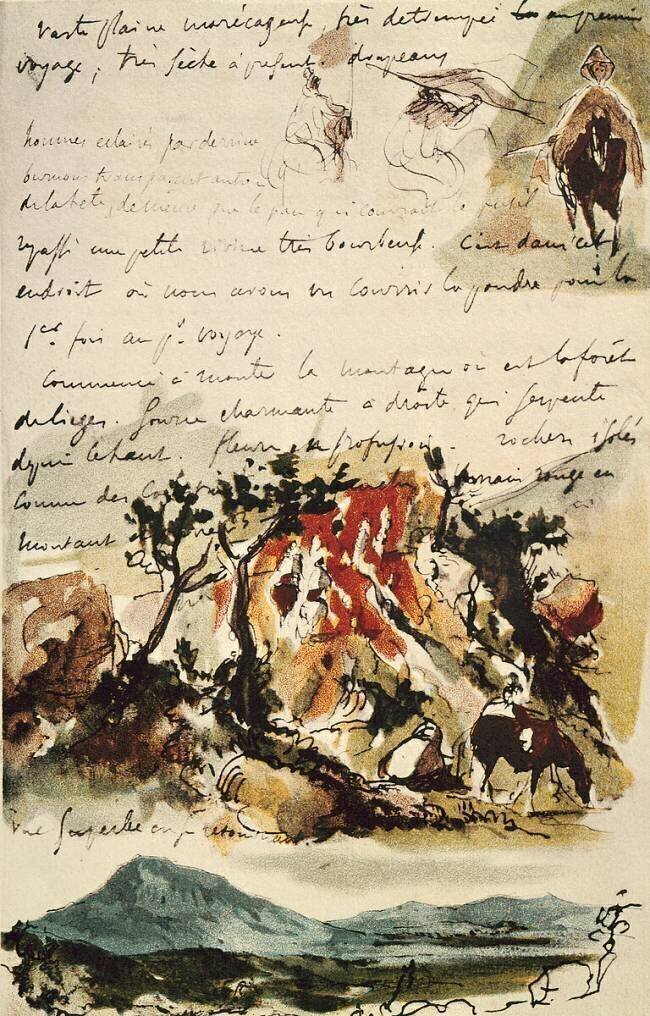 vaste plaine marécageuse, très detrempée au premier
voyage ; très sèche à present. drapeaux
hommes eclairés par derrière
burnous transparent autour
de la tête, de meme que le pan qui couvrait le fusil
repassé une petite rivière très bourbeuse. C'est dans cet
endroit où nous avons vu courrir la poudre pour la
1ere fois au pr. voyage.
Commencé à monter la montagne où est la forêt
de lieges. Source charmante à droite qui serpente
depuis le haut. Fleurs en profusion. rochers isolés
Comme des terrain rouge en
montant
Vue superbe en se retournant.